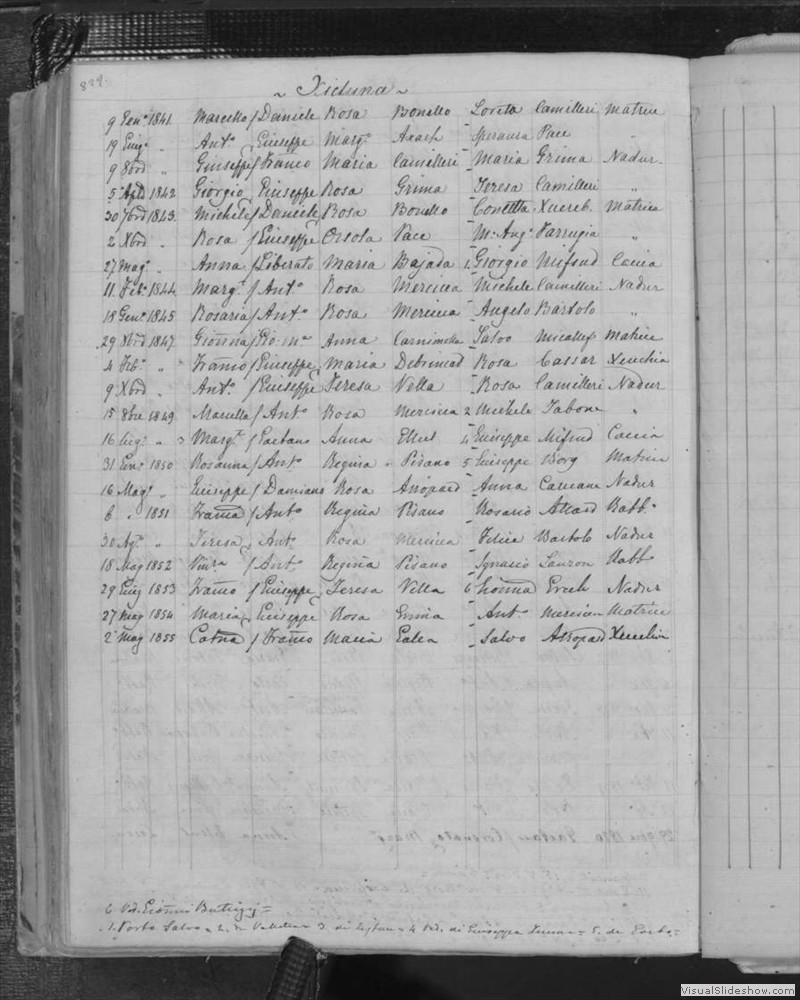 829.
~ Xicluna ~
9 Gen.o 1841. Marcello / Daniele Rosa Bonello - Loreta Camilleri Matrice
19 Giug.o " Ant.o / Giuseppe Marg.a Axach - Speranza Pace "
9 8bre " Giuseppe / Franco Maria Camilleri - Maria Grima Nadur
5 1842 Giorgio / Giuseppe Rosa Grima - Teresa Camilleri "
30 7bre 1843. Michele / Daniele Rosa Bonello - Xuereb. Matrice
2 Xbre " Rosa / Giuseppe Orsola Pace - M.a Ang.a Farrugia "
27 Mag.o " Anna / Liberato Maria Bajada 1 Giorgio Mifsud Caccia
11 Feb.o 1844 Marg.a / Ant.o Rosa Mercieca - Michele Camilleri Nadur
18 Gen.o 1845 Rosaria / Ant.o Rosa Mercieca - Angelo Bartolo "
29 Xbre 1847 Gionna / Gio. M.a Anna - Salvo Micallef Matrice
4 Feb.o " Franco / Giuseppe Maria - Rosa Cassar Xeuchia
9 Xbre " Ant.o / Giuseppe Teresa Vella - Rosa Camilleri Nadur
15 8bre 1849 Marcella / Ant.o Rosa Mercieca 2 Michele Tabone "
16 " 3 Marg.a / Gaetano Anna 4 Giuseppe Mifsud Caccia
31 Gen.o 1850 Rosanna / Ant.o Regina Pisano 5 Giuseppe Borg Matrice
16 Mag.o " Giuseppe / Damiano Rosa Azzopard - Anna Caruana Nadur
6 " 1851 / Ant.o Regina Pisano - Rosario Attard Rabb.o
30 " Teresa / Ant.o Rosa Mercieca - Felice Bartolo Nadur
18 Mag 1852 / Ant.o Regina Pisano - Ignazio Rabb.o
29 Giug 1853 Franco / Giuseppe Teresa Vella 6 Gionna Nadur
27 Mag 1854 Maria / Giuseppe Rosa Grima - Ant.o Mercieca Matrice
2 Mag 1855 Catna / Franco Maria Galea - Salvo Azzopard Xeuchia
6 Ved. Gionni Buttigieg =
1. Porto Salvo = 2. da Valletta = 3 di = 4 Ved. di Giuseppe = 5. de
VisualSlideshow.com